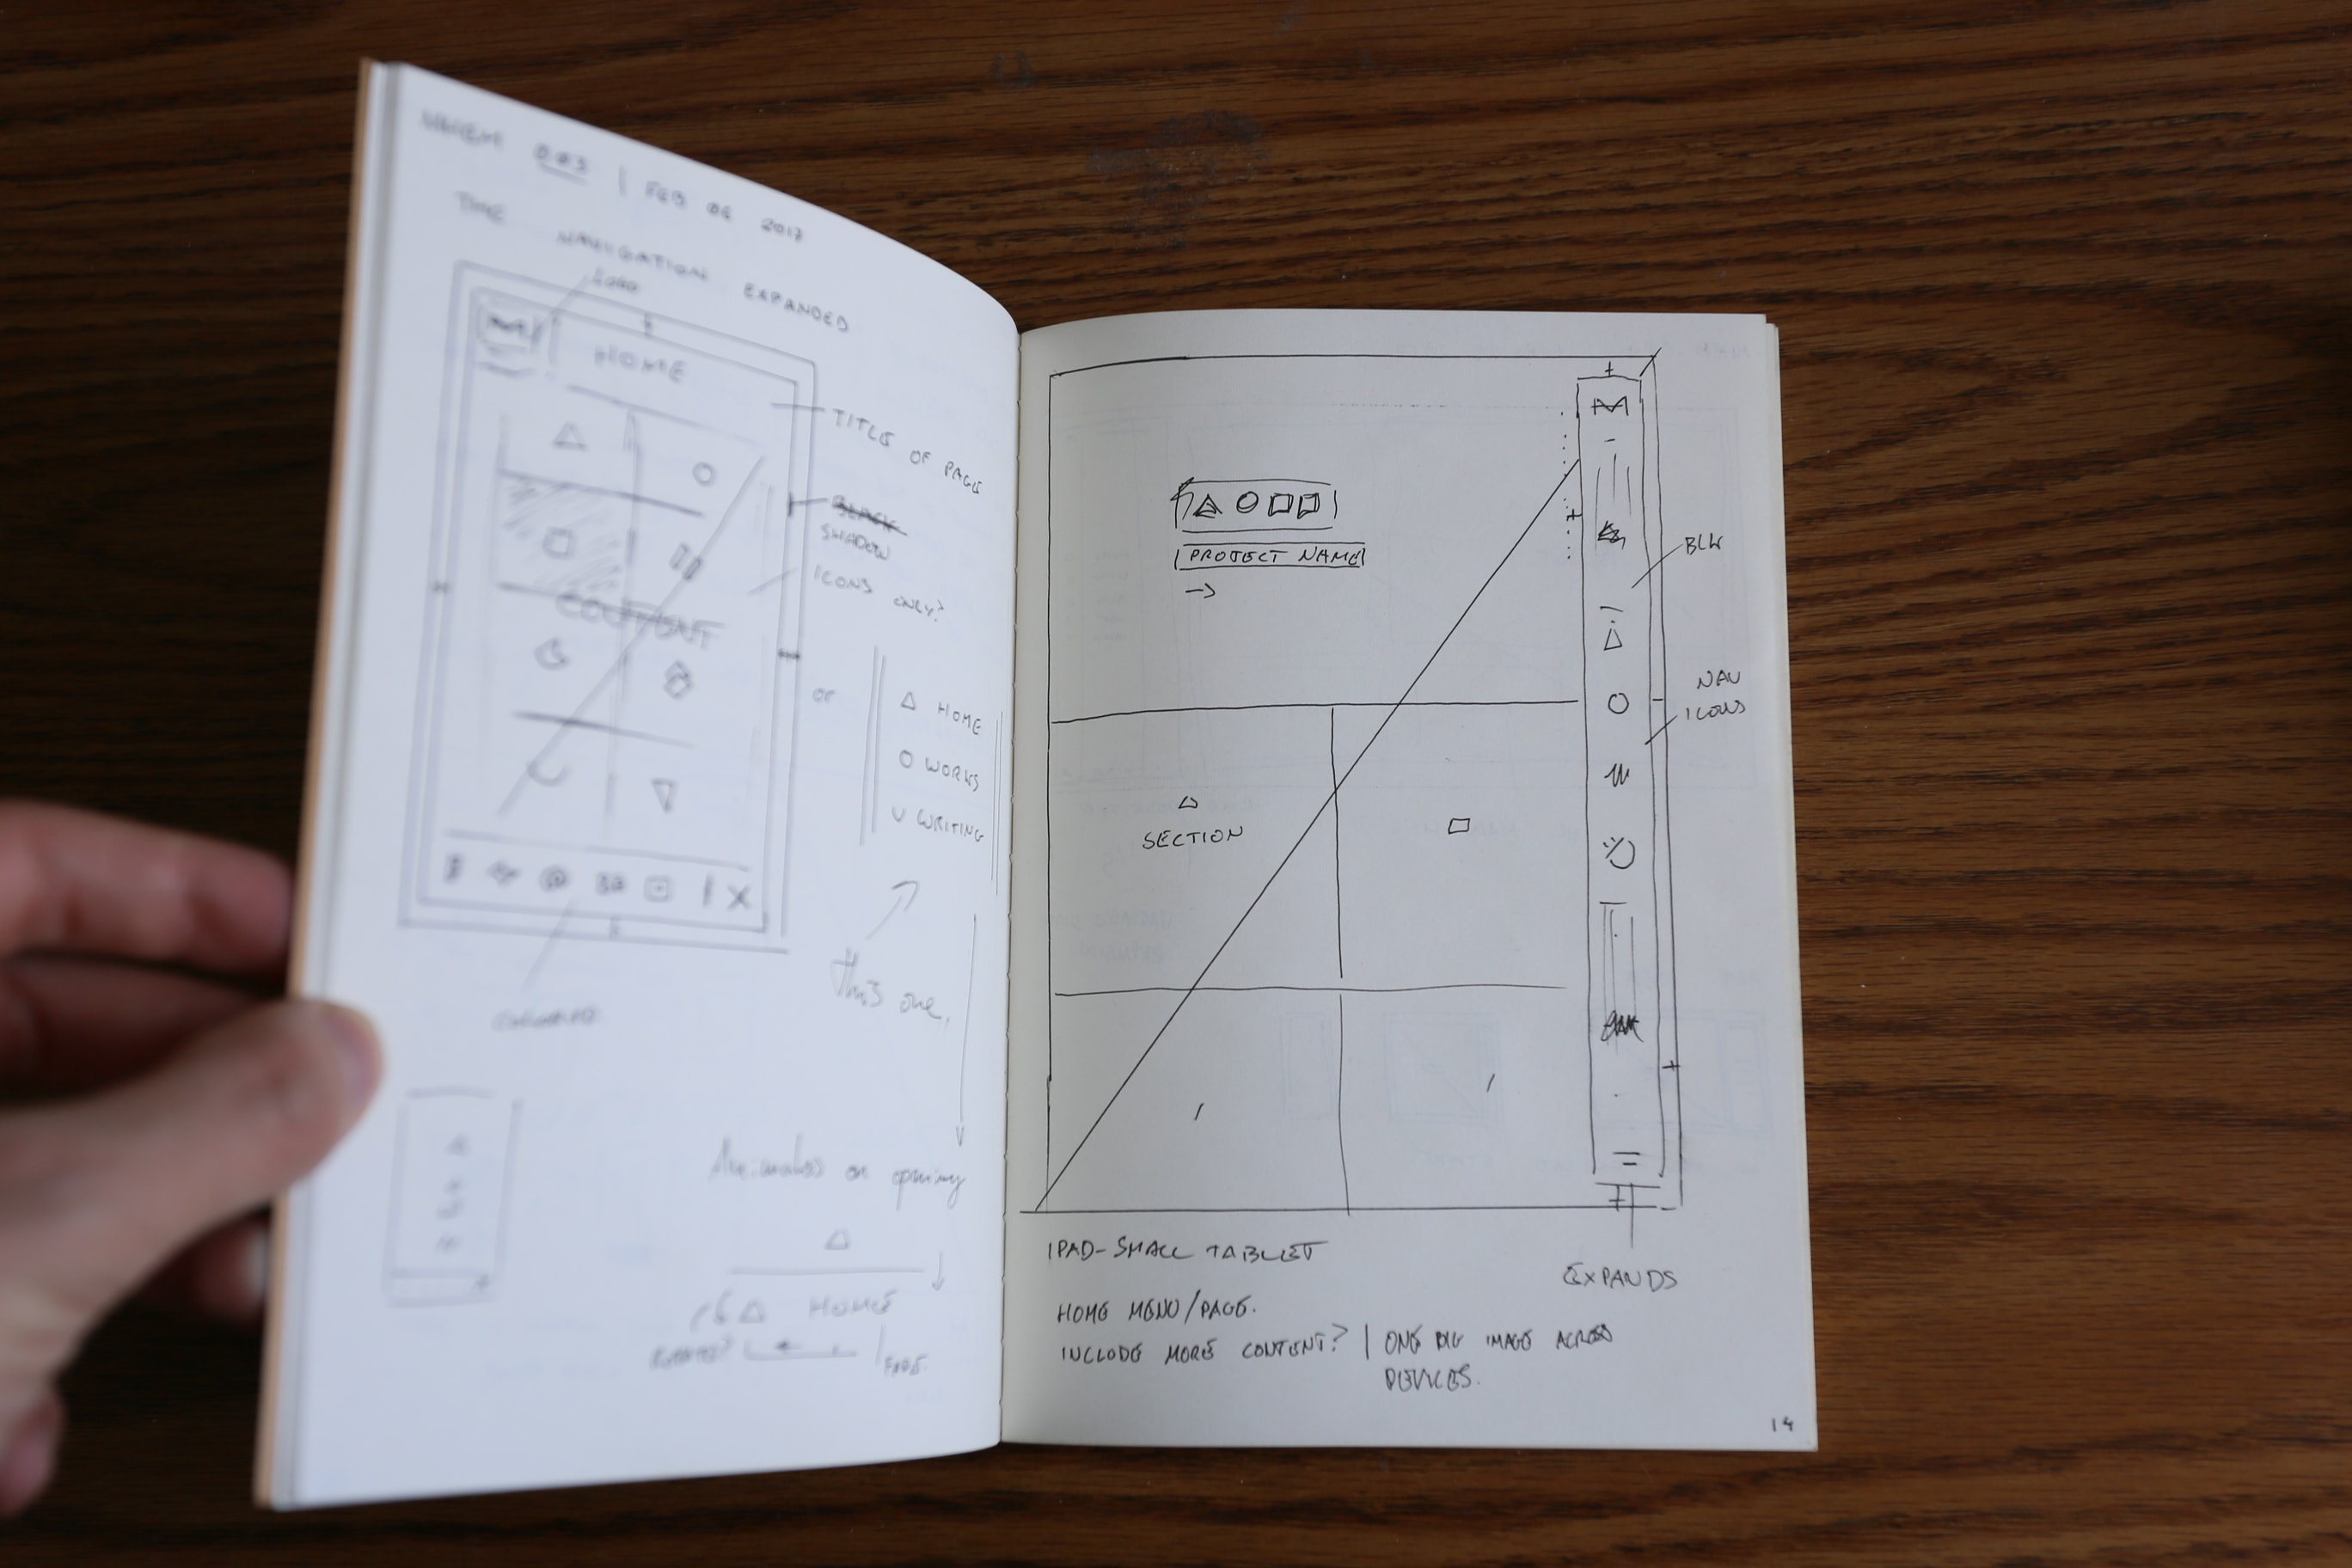 003 | FEB 06 2017
THE NAVIGATION EXPANDED
LOGO
HOME
TITLE OF PAGE
BLACK
SHADOW
ICONS ONLY?
CONTENT
OR
△ HOME
○ WORKS
∪ WRITING
X
This one.
on opening
△
△ HOME
FADE.
PROJECT NAME
→
BLK
NAV
ICONS
SECTION
IPAD-SMALL TABLET
EXPANDS
HOME MENU/PAGE.
INCLUDE MORE CONTENT? | ONE BIG IMAGE ACROSS
DEVICES.
14